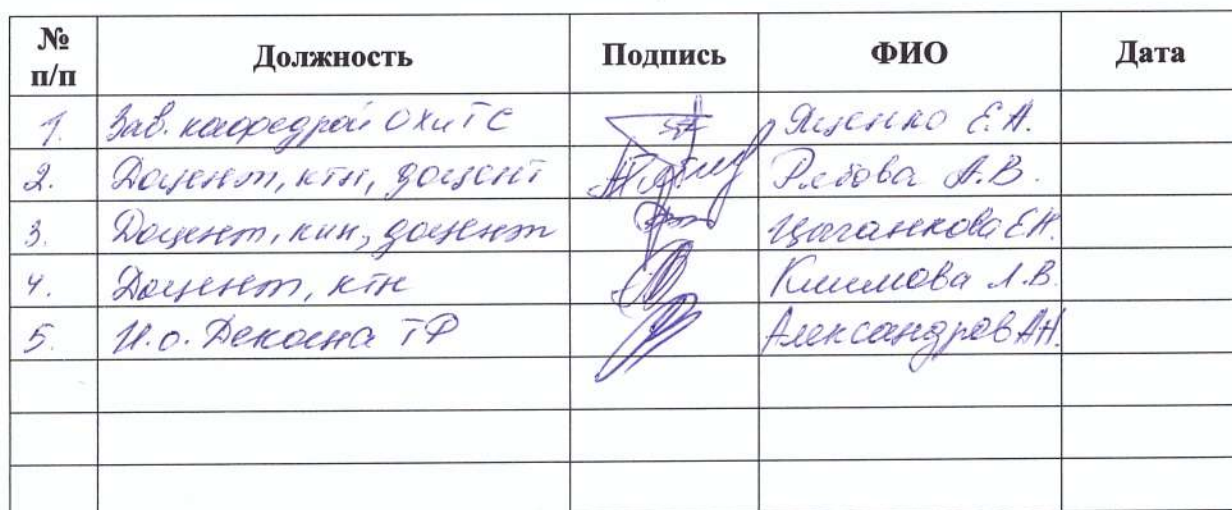 № п/п Должность Подпись ФИО Дата
1. Зав. кафедрой ОХиТС Яценко Е.А.
2. Доцент, ктн, доцент Рябова А.В.
3. Доцент, кин, доцент Цыганкова Е.Н.
4. Доцент, ктн Климова Л.В.
5. И.о. Декана ТФ Александров А.Н.